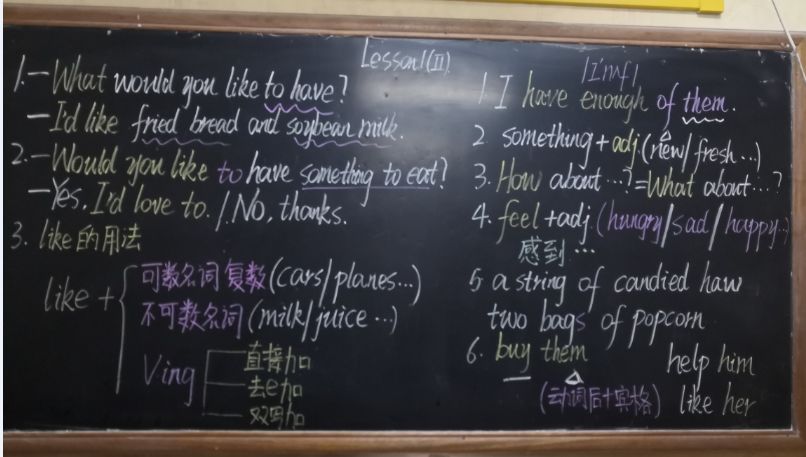 Lesson1(II)
1.—What would you like to have?
—I'd like fried bread and soybean milk.
2.—Would you like to have something to eat?
—Yes, I'd love to. / No, thanks.
3. like的用法
like + 可数名词复数(cars/planes...)
不可数名词(milk/juice...)
Ving 直接加
去e加
双写加
1 I have enough of them.
2 something+adj(new/fresh...)
3. How about...?=What about...?
4. feel+adj.(hungry/sad/happy..)
感到...
5 a string of candied haw
two bags of popcorn
6. buy them help him
(动词后+宾格) like her